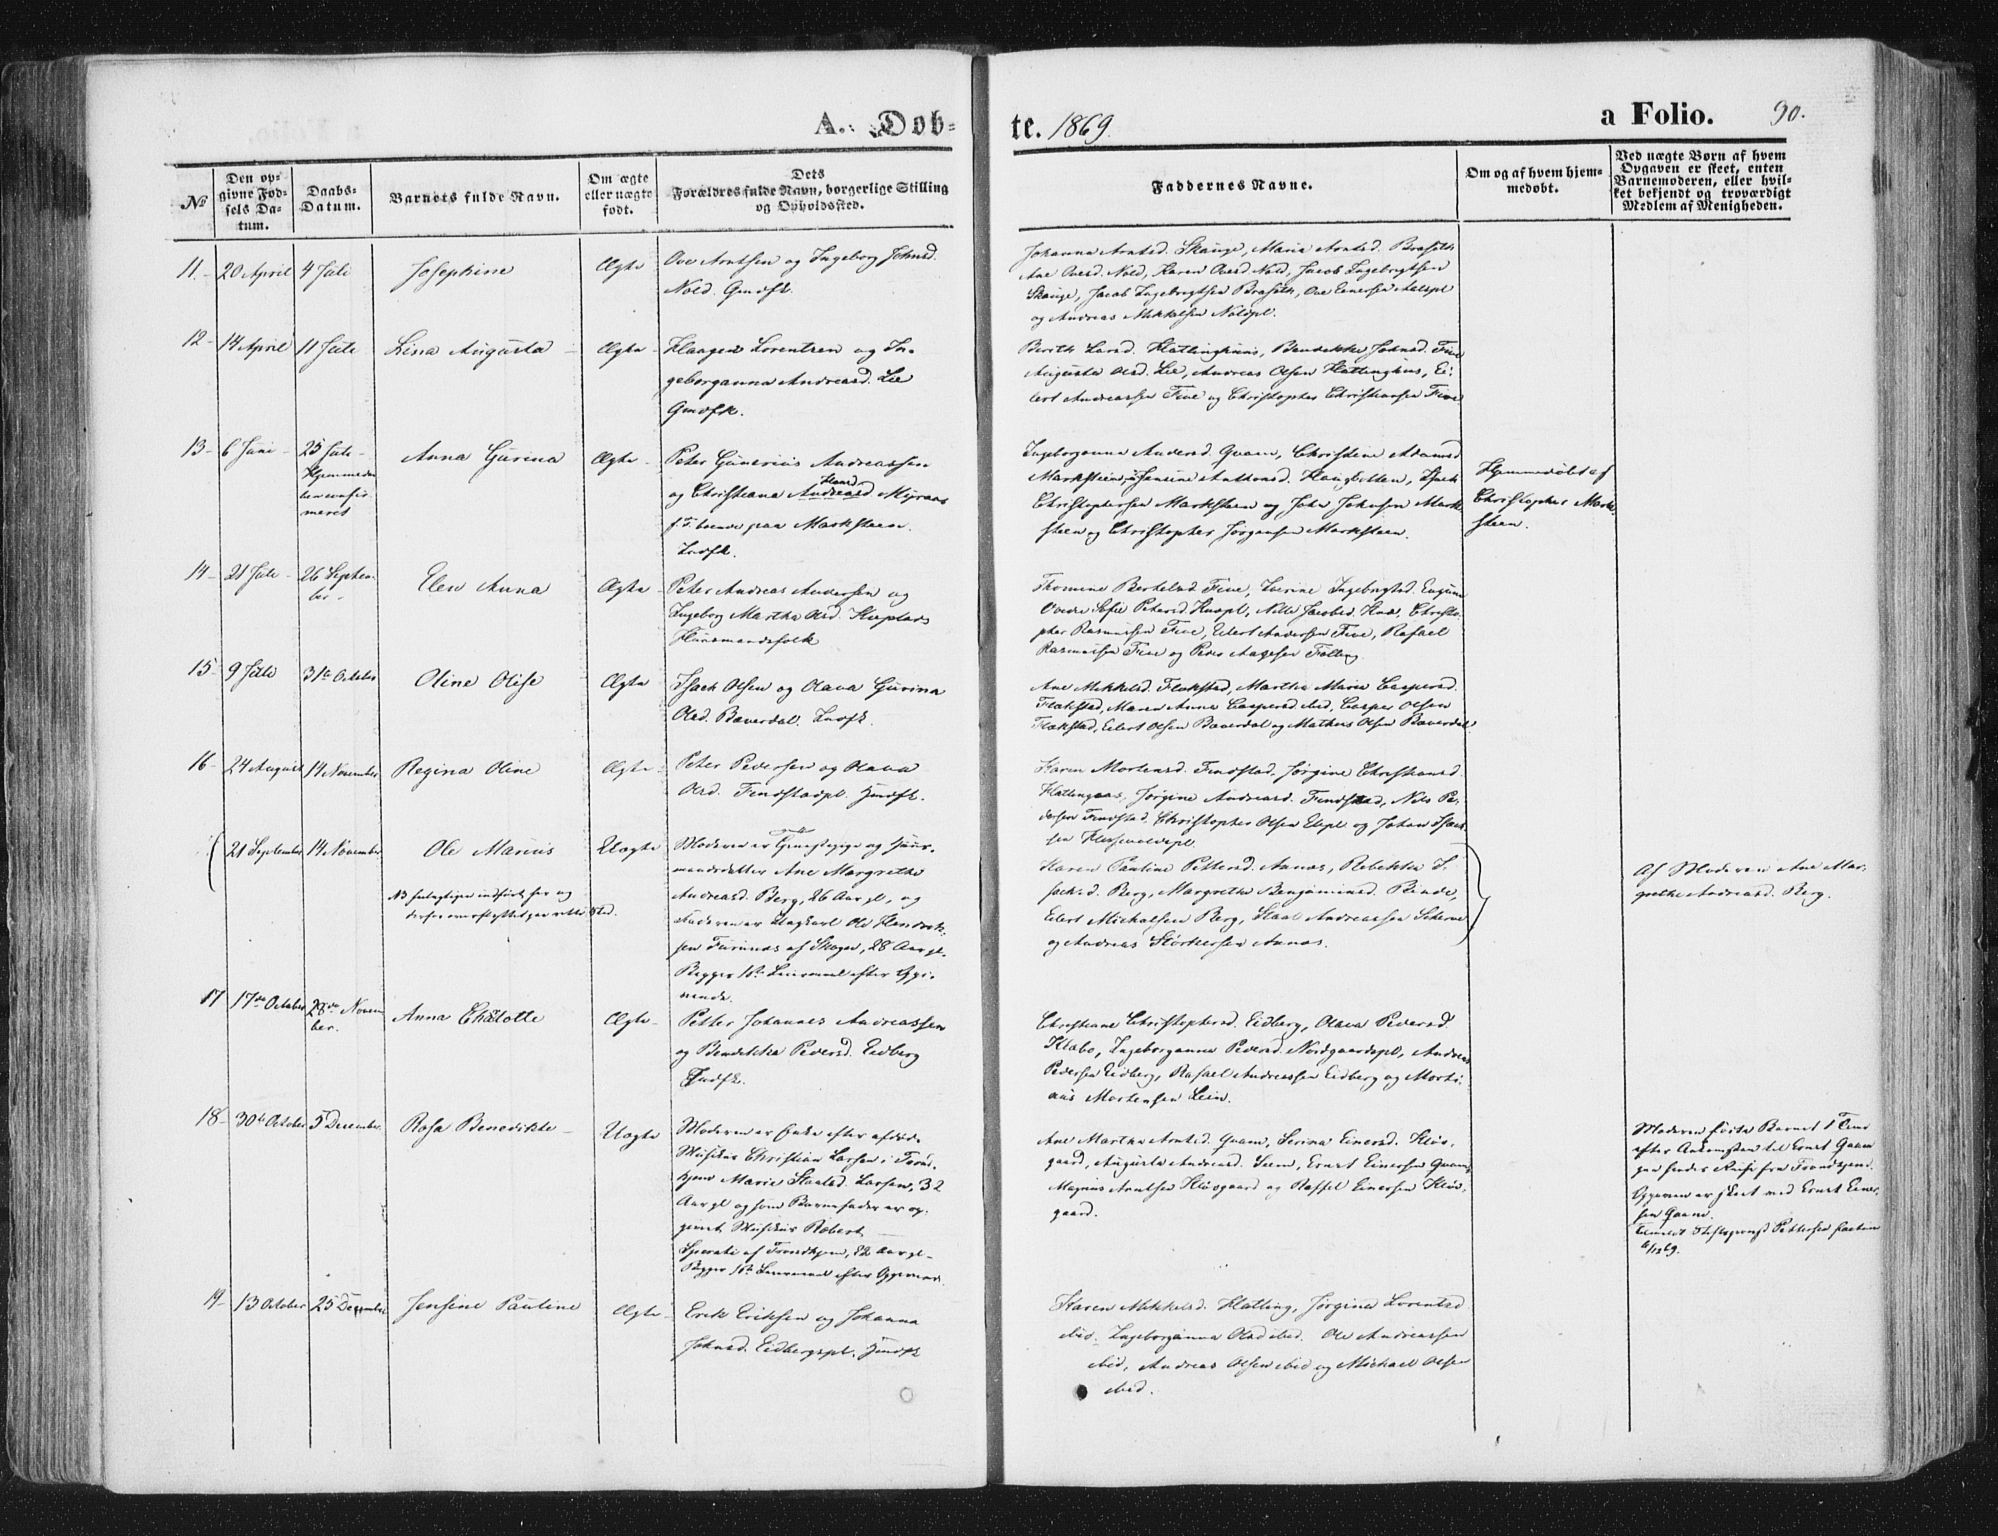 A. Døb-
te. 1869.
a Folio. 90.
№
Den op-
givne Fød-
sels Da-
tum.
Daabs-
Datum.
Barnets fulde Navn.
Om ægte
eller uægte
født.
Dets
Forældres fulde Navn, borgerlige Stilling
og Opholdssted.
Faddernes Navne.
Om og af hvem hjem-
medøbt.
Ved uægte Børn af hvem
Opgaven er skeet, enten
Barnemoderen, eller hvil-
ket bekjendt og troværdigt
Medlem af Menigheden.
11. 20 April 4 Juli Josephine Ægte
Ove Arntsen og Ingeborg Johnsd.
Nold. Gmdfk.
Johanna Arntsd. Skauge, Maria Arntsd. Braseth
Ane Overd. Nold, Karen Overd Nold, Jacob Ingebrigtsen
Skauge, Jacob Ingebrigtsen Braseth, Ove Einersen
og Andreas Mikkelsen Noldpl.
12 - 14 April 11 Juli Lina Augusta - Ægte -
Haagen Lorentzen og In-
geborganna Andreasd. Lee
Gmdfk.
Berith Larsd. Hattinghuus, Bendikke Johnsd. Five
Augusta Olsd. Lee, Andreas Olsen Hattinghus, Ei-
lert Andreassen Five og Christopher Christiansen Five
13 - 6 Juni - 25 Juli - Anna Gurina Ægte -
Hjemmedaa-
ben confir
meret
Peter Gunerius Andreassen
og Christiana Andreasd Myraas
f. T. boende paa Marksteen.
Indfk.
Ingeborganna Andersd. Quam, Christine Adamsd
Marksteen, Jensine Antonsd. Haugbotten, Isach
Christophersen Marksteen og John Johnsen Mark
steen og Christopher Jørgensen Marksteen.
Hjemmedøbt af
Christopher Mark-
steen.
14 - 21 Juli - 26 Septem-
ber - Elen Anna Ægte -
Peter Andreas Andersen og
Ingeborg Martha Olsd.
Huusmandsfolk
Thomine Bertelsd Five, Ingebrigtsd.
Sofie Petersd. Jacobsd. Christo-
pher Rasmusen Five, Eilert Andersen Five, Rafael
Rasmusen Five og Peder Aagesen Følling
15 - 9 Juli 31te October Oline Olise Ægte
Isach Olsen og Olava Gurina
Olsd. Baverdal. Indfk.
Ane Mikkelsd. Flekstad, Martha Maria Caspersd.
Flekstad, Maren Anna Caspersd ibid, Casper Olsen
Flekstad, Eilert Olsen Baverdal og Mathias Olsen Baverdal
16 - 24 August 14 November Regina Oline Ægte -
Peter Pedersen og Olava
Olsd. Findstadpl. Hmdfk.
Karen Mortensd. Findstad, Jørgine Christiansd.
Hattingaas, Jørgine Andreasd. Findstad, Nils Pe-
dersen Findstad, Christopher Olsen og Johan Isach-
sen
21 September 14 November Ole Marius Uægte
NB feilagtigen indført her og
derfor overflyttet paa rette Sted.
Moderen er ugift og Huus-
mandsdatter Ane Margrethe
Andreasd. Berg, 26 Aar gl., og
Faderen er Ungkarl Ole Hendrik-
sen Furunes af Skogn, 28 Aar gl.
Begges 1ste Leiermaal efter Opgi-
vende.
Karen Pauline Pettersd. Aanes, Rebekka I-
sachsd. Berg, Margrethe Benjaminsd. Rinde,
Eilert Michalsen Berg, Staal Andreassen
og Andreas Størkersen Aanes.
Af Moderen Ane Mar-
grethe Andreasd. Berg.
17 17de October 28de Novem
ber. Anna Charlotte Ægte -
Petter Johannes Andreassen
og Bendikka Pedersd. Eidberg
Indfk.
Christiane Christophersd. Eidberg, Olava Pedersd.
Klabo, Ingeborganna Pedersd. Nordgaardspl, Andreas
Pedersen Eidberg, Rafael Andreassen Eidberg og Morti-
nus Mortensen Lein.
18 - 30te October 5 December. Rosa Benedikte - Uægte
Moderen er Enke efter afdøde
Musikus Christian Larsen i Trond-
hjem Marie Staalsd. Larsen, 32
Aar gl og som Barnefader er op-
givet Musikus Robert
Sperati af Trondhjem, 22 Aar gl.
Begges 1ste Leiermaal efter Opgivende.
Ane Martha Arntsd. Quam, Serina Einersd. Kløv-
gaard, Augusta Andreasd. Seem, Ernst Einersen Quam,
Magnus Arntsen Kløvgaard og Raffel Einersen Kløv-
gaard.
Moderen fødte Barnet 1 Time
efter Ankomsten til Ernst Quam
paa hendes Reise fra Trondhjem.
Opgaven er skeet med Ernst Einer-
sen Quam.
Anmeldt Stiftsprovst Pettersen Facium
6/12 69.
19 - 13 October 25 December Jensine Pauline Ægte -
Erik Eriksen og Johanna
Johnsd. Eidbergspl. Hmdfk
Karen Mikkelsd. Hatling, Jørgine Lorentsd
ibid. Ingeborganna Olsd ibid. Ole Andreassen
ibid, Andreas Olsen ibid og Michael Olsen
ibid.